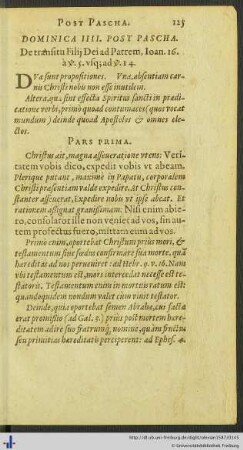 POST PASCHA. 225
DOMINICA IIII. POST PASCHA.
De transitu Filij Dei ad Patrem, Ioan. 16.
à ℣. 5. vsq; ad ℣. 14.
DVæ sunt propositiones. Vna, absentiam car-
nis Christi nobis non esse inutilem.
Altera, qui sint effectus Spiritus sancti in prædi-
catione verbi, primò quoad contumaces (quos vocat
mundum) deinde quoad Apostolos & omnes ele-
ctos.
PARS PRIMA.
Christus ait, magna asseueratione vtens: Veri-
tatem vobis dico, expedit vobis vt abeam.
Plerique putant, maximè in Papatu, corporalem
Christi præsentiam valde expedire. At Christus con-
stanter asseuerat, Expedire nobis vt ipse abeat. Et
rationem assignat grauissimam. Nisi enim abie-
ro, consolator ille non veniet ad vos, sin au-
tem profectus fuero, mittam eum ad vos.
Primò enim, oportebat Christum prius mori, &
testamentum suum suâ morte, quàm
hæreditas ad nos perueniret: ad Hebr. 9. v. 16. Nam
vbi testamentum est, mors intercedat necesse est te-
statoris. Testamentum enim in mortuis ratum est:
quandoquidem nondum valet cum viuit testator.
Deinde, quia oportebat semen Abrahæ, cui facta
erat promissio (ad Gal. 3.) prius post mortem hære-
ditatem adire suo fratrumq; nomine, quàm fructus
seu primitias hæreditatis perciperent: ad Ephes. 4.
© Universitätsbibliothek Freiburg